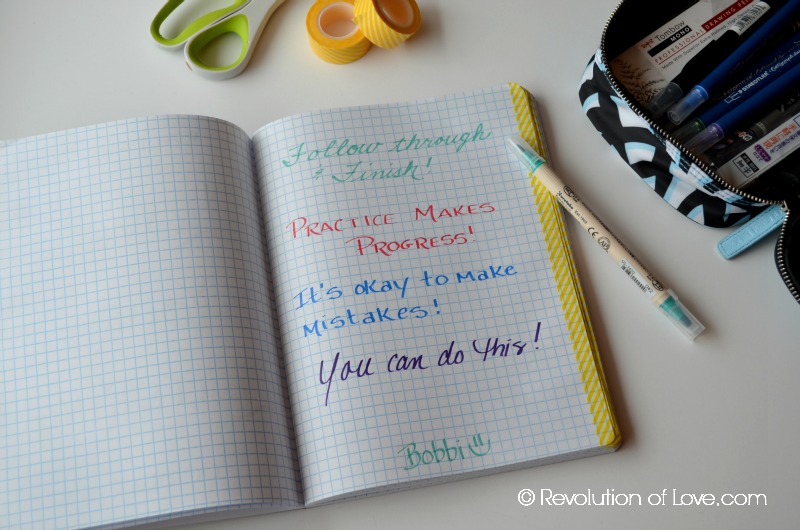 Follow through
& Finish!
Practice Makes
Progress!
It's okay to make
mistakes!
You can do this!
Bobbi
Tombow
MONO
PROFESSIONAL DRAWING PENCIL
STAEDTLER
© Revolution of Love.com